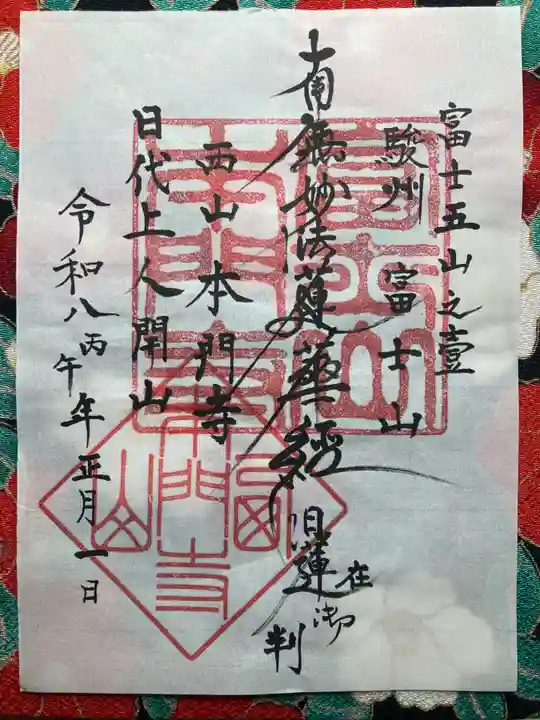 富士五山之壹
駿州 富士山
南無妙法蓮華経
日蓮 在御判
西山 本門寺
日代上人開山
令和八丙午年正月一日
富士山
本門寺
富
本門寺
山